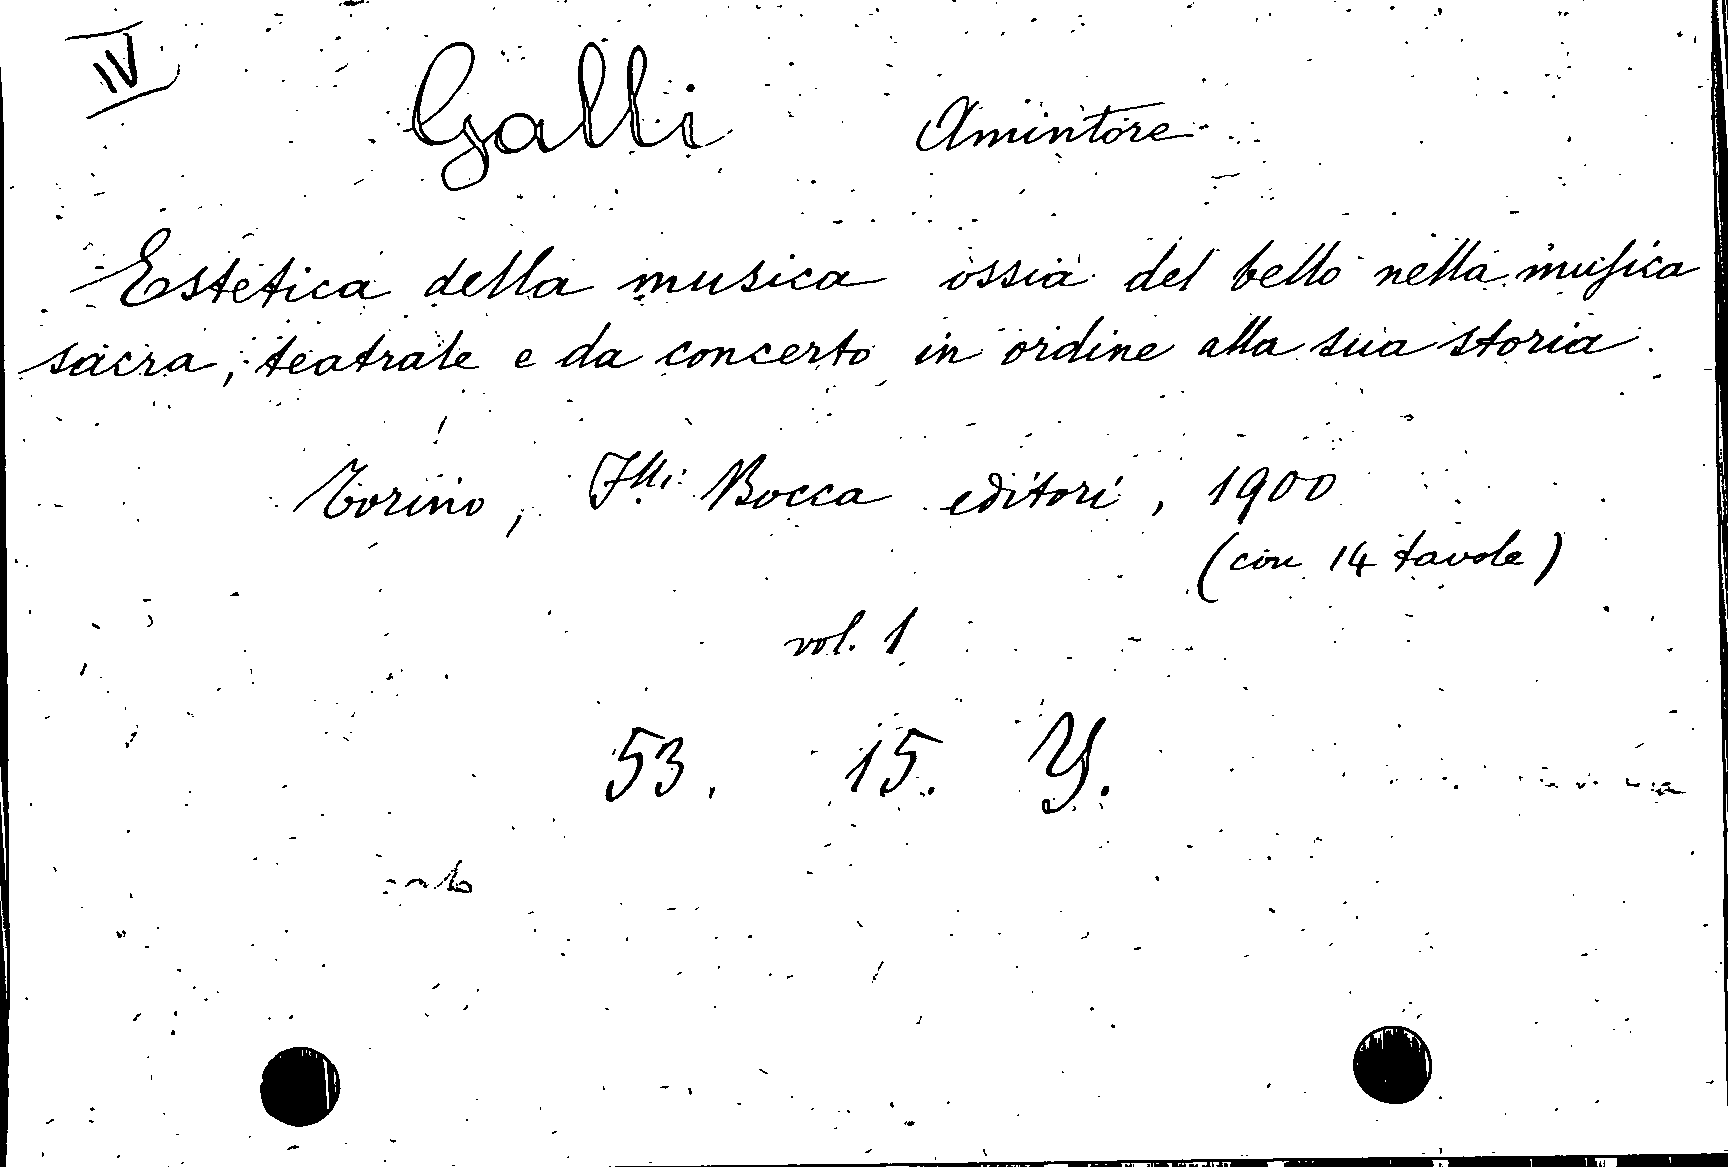 IV
Galli Amintore
Estetica della musica ossia del bello nella musica
sacra, teatrale e da concerto in ordine alla sua storia.
Torino, Flli Bocca editori, 1900
(con 14 tavole)
vol. 1
53. 15. Y.